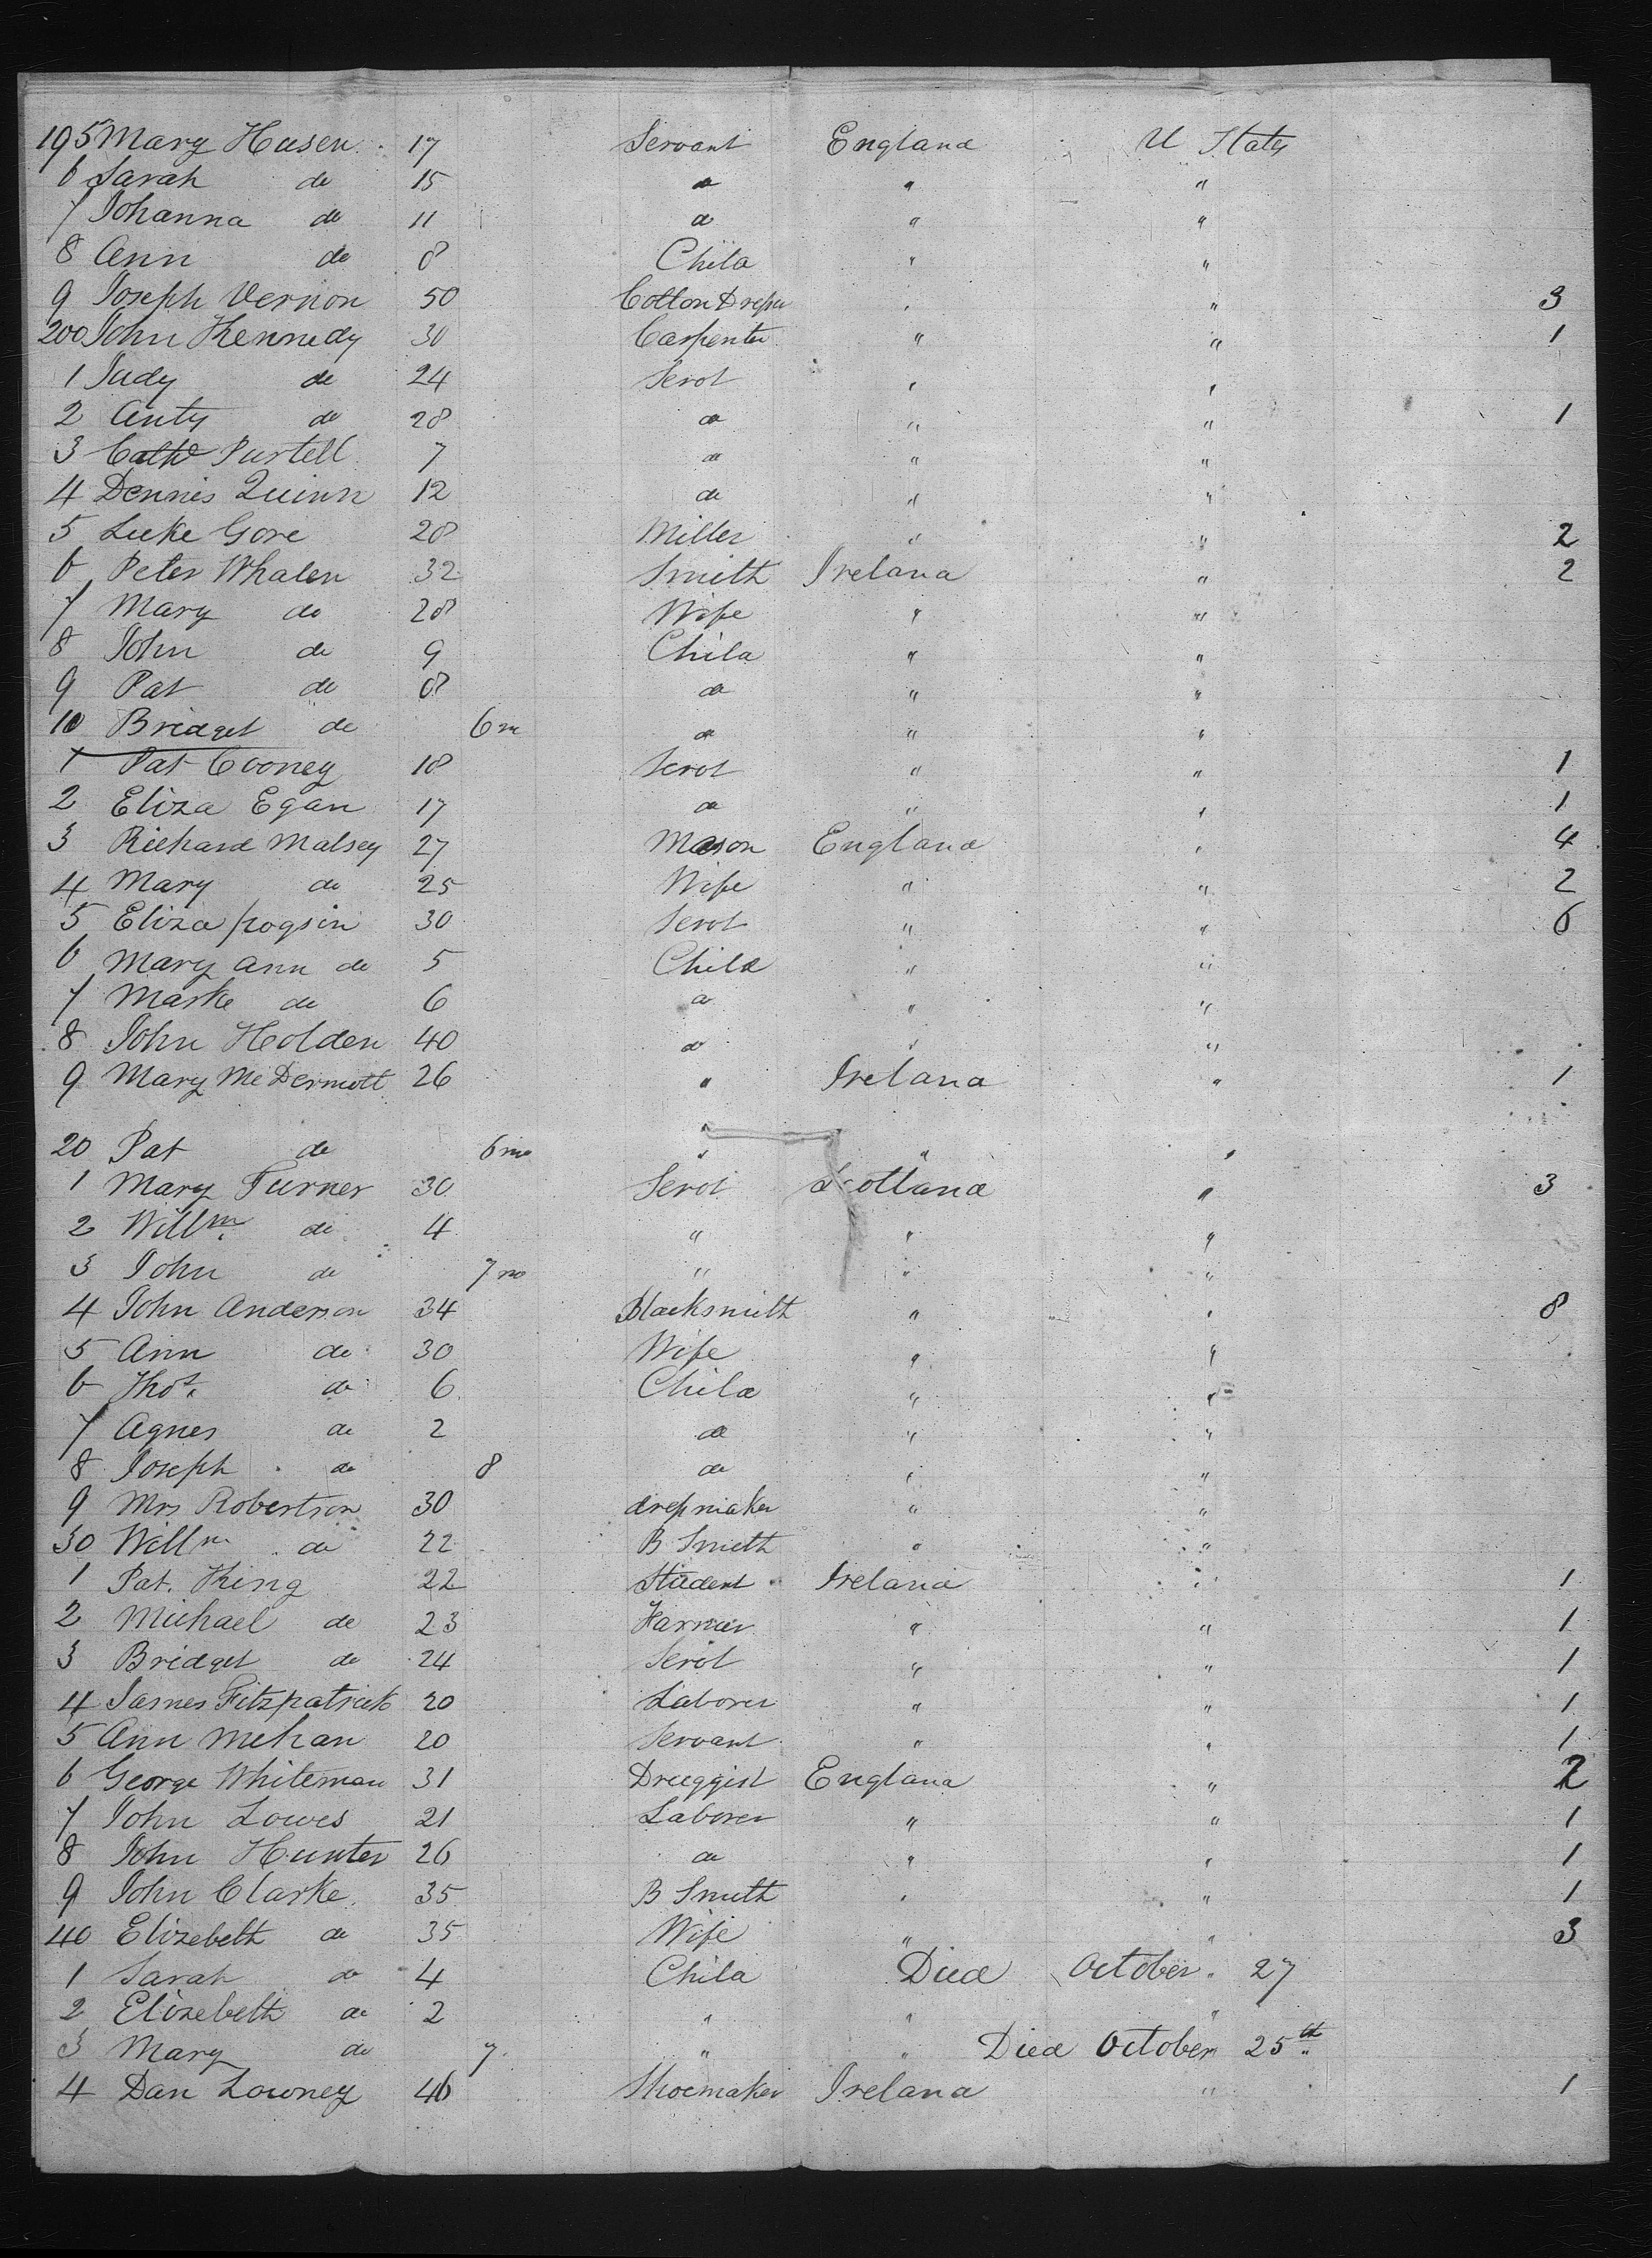 195 Mary Husen 17 Servant England U States
6 Sarah do 15 do " "
7 Johanna do 11 do " "
8 Ann do 8 Child " "
9 Joseph Vernon 50 Cotton " " 3
200 John Kennedy 30 Carpenter " " 1
1 Judy do 24 Servt " "
2 Anty do 28 do " " 1
3 Cath Purtell 7 do " "
4 Dennis Quinn 12 do " "
5 Luke Gore 28 Miller " " 2
6 Peter Whalen 32 Smith Ireland " 2
7 Mary do 28 Wife " "
8 John do 9 Child " "
9 Pat do 8 do " "
10 Bridget do 6 m do " "
1 Pat Cooney 18 Servt " " 1
2 Eliza Egan 17 do " " 1
3 Richard Malsey 27 Mason England " 4
4 Mary do 25 Wife " " 2
5 Eliza 30 Servt " " 6
6 Mary Ann do 5 Child " "
7 Marke do 6 do " "
8 John Holden 40 do " "
9 Mary McDermott 26 " Ireland " 1
20 Pat do 6 mo " " "
1 Mary Turner 30 Servt Scotland " 3
2 Willm do 4 " " "
3 John do 7 mo " " "
4 John Anderson 34 Blacksmith " " 8
5 Ann do 30 Wife " "
6 Thos. do 6 Child " "
7 Agnes do 2 do " "
8 Joseph do 8 do " "
9 Mrs Robertson 30 dressmaker " "
30 Willm do 22 B Smith " "
1 Pat. King 22 Student Ireland " 1
2 Michael do 23 Farmer " " 1
3 Bridget do 24 Servt " " 1
4 James Fitzpatrick 20 Laborer " " 1
5 Ann Mehan 20 Servant " " 1
6 George Whiteman 31 Druggist England " 2
7 John Lowes 21 Laborer " " 1
8 John Hunter 26 do " " 1
9 John Clarke 35 B Smith " " 1
40 Elizebeth do 35 Wife " " 3
1 Sarah do 4 Child Died October 27
2 Elizebeth do 2 " " "
3 Mary do 7 " " Died October 25th
4 Dan Lowney 46 Shoemaker Ireland " 1